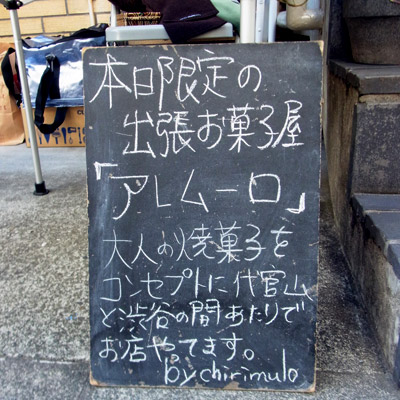 本日限定の
出張お菓子屋
「アレムーロ」
大人の焼菓子を
コンセプトに代官山
と渋谷の間あたりで
お店やってます。
by chirimulo